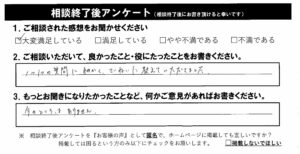 相談終了後アンケート（相談終了後にお書き頂けると幸いです）
1. ご相談された感想をお聞かせください
☑大変満足している □満足している □やや不満である □不満である
2. ご相談いただいて、良かったこと・役にたったことをお書きください。
1つ1つの質問に細かく、ていねいに教えていただけた点
3. もっとお聞きになりたかったことなど、何かご意見があればお書きください。
今のところ、ありません。
※ 相談終了後アンケートを『お客様の声』として匿名で、ホームページに掲載しても宜しいですか？
掲載しては困るという方のみ以下にチェックをお願いします。 □掲載しないでほしい